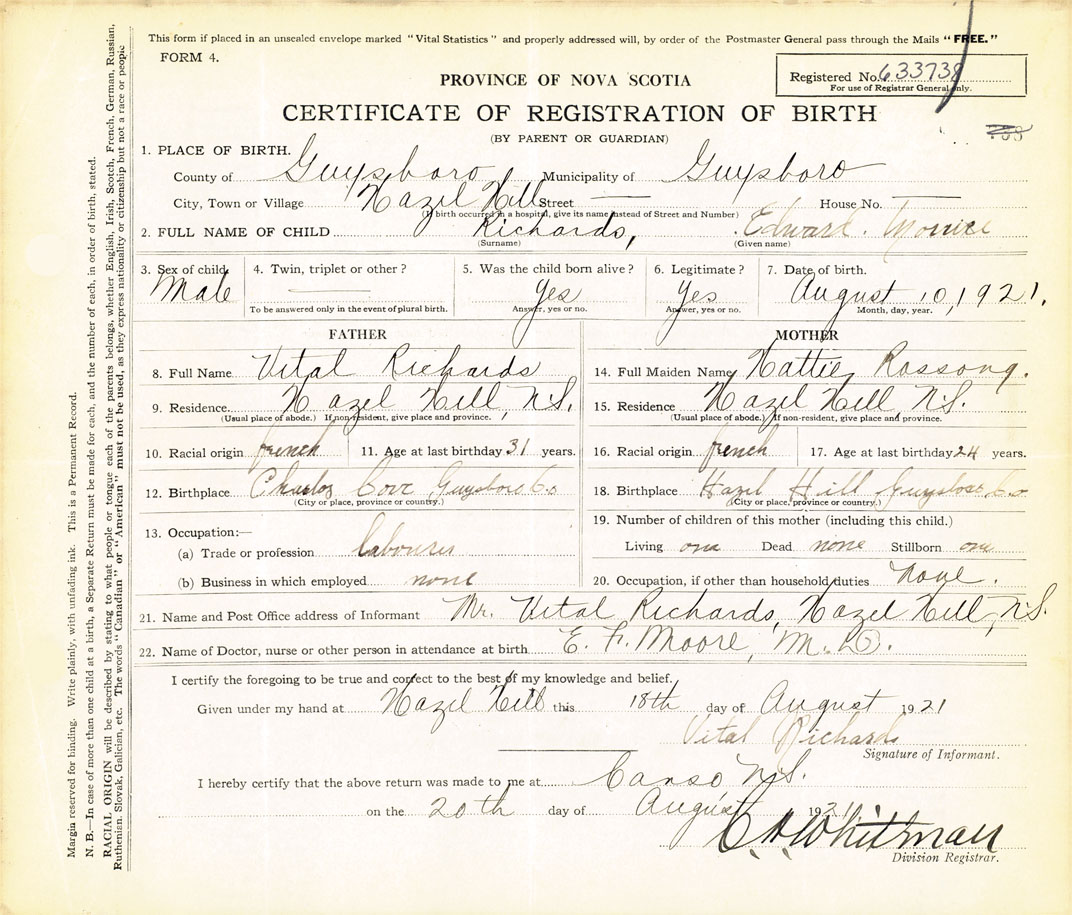 This form if placed in an unsealed envelope marked "Vital Statistics" and properly addressed will, by order of the Postmaster General pass through the Mails "FREE."
FORM 4.
Registered No. 633738
For use of Registrar General only.
PROVINCE OF NOVA SCOTIA
CERTIFICATE OF REGISTRATION OF BIRTH
(BY PARENT OR GUARDIAN)
1. PLACE OF BIRTH.
County of Guysboro Municipality of Guysboro
City, Town or Village Hazel Hill Street — House No. —
(If birth occurred in a hospital, give its name instead of Street and Number)
2. FULL NAME OF CHILD Richards, Edward
(Surname) (Given name)
3. Sex of child. 4. Twin, triplet or other? 5. Was the child born alive? 6. Legitimate? 7. Date of birth.
Male — Yes Yes August 10, 1921.
To be answered only in the event of plural birth. Answer, yes or no. Answer, yes or no. Month, day, year.
FATHER
8. Full Name Vital Richards
9. Residence. Hazel Hill, N.S.
(Usual place of abode.) If non-resident, give place and province.
10. Racial origin french 11. Age at last birthday 31 years.
12. Birthplace Charlos Cove Guysboro Co
(City or place, province or country.)
13. Occupation:—
(a) Trade or profession labourer
(b) Business in which employed none
MOTHER
14. Full Maiden Name Hattie
15. Residence Hazel Hill N.S.
(Usual place of abode.) If non-resident, give place and province.
16. Racial origin french 17. Age at last birthday 24 years.
18. Birthplace Hazel Hill Guysboro Co
(City or place, province or country.)
19. Number of children of this mother (including this child.)
Living one Dead none Stillborn one
20. Occupation, if other than household duties None.
21. Name and Post Office address of Informant Mr. Vital Richards, Hazel Hill, N.S.
22. Name of Doctor, nurse or other person in attendance at birth E. F. Moore, M.D.
I certify the foregoing to be true and correct to the best of my knowledge and belief.
Given under my hand at Hazel Hill this 18th day of August 1921
Vital Richards
Signature of Informant.
I hereby certify that the above return was made to me at Canso N.S.
on the 20th day of August 1921
C H Whitman
Division Registrar.
Margin reserved for binding. Write plainly, with unfading ink. This is a Permanent Record.
N. B.—In case of more than one child at a birth, a Separate Return must be made for each, and the number of each, in order of birth, stated.
RACIAL ORIGIN will be described by stating to what people or tongue each of the parents belongs, whether English, Irish, Scotch, French, German, Russian,
Ruthenian, Slovak, Galician, etc. The words "Canadian" or "American" must not be used, as they express nationality or citizenship but not a race or people